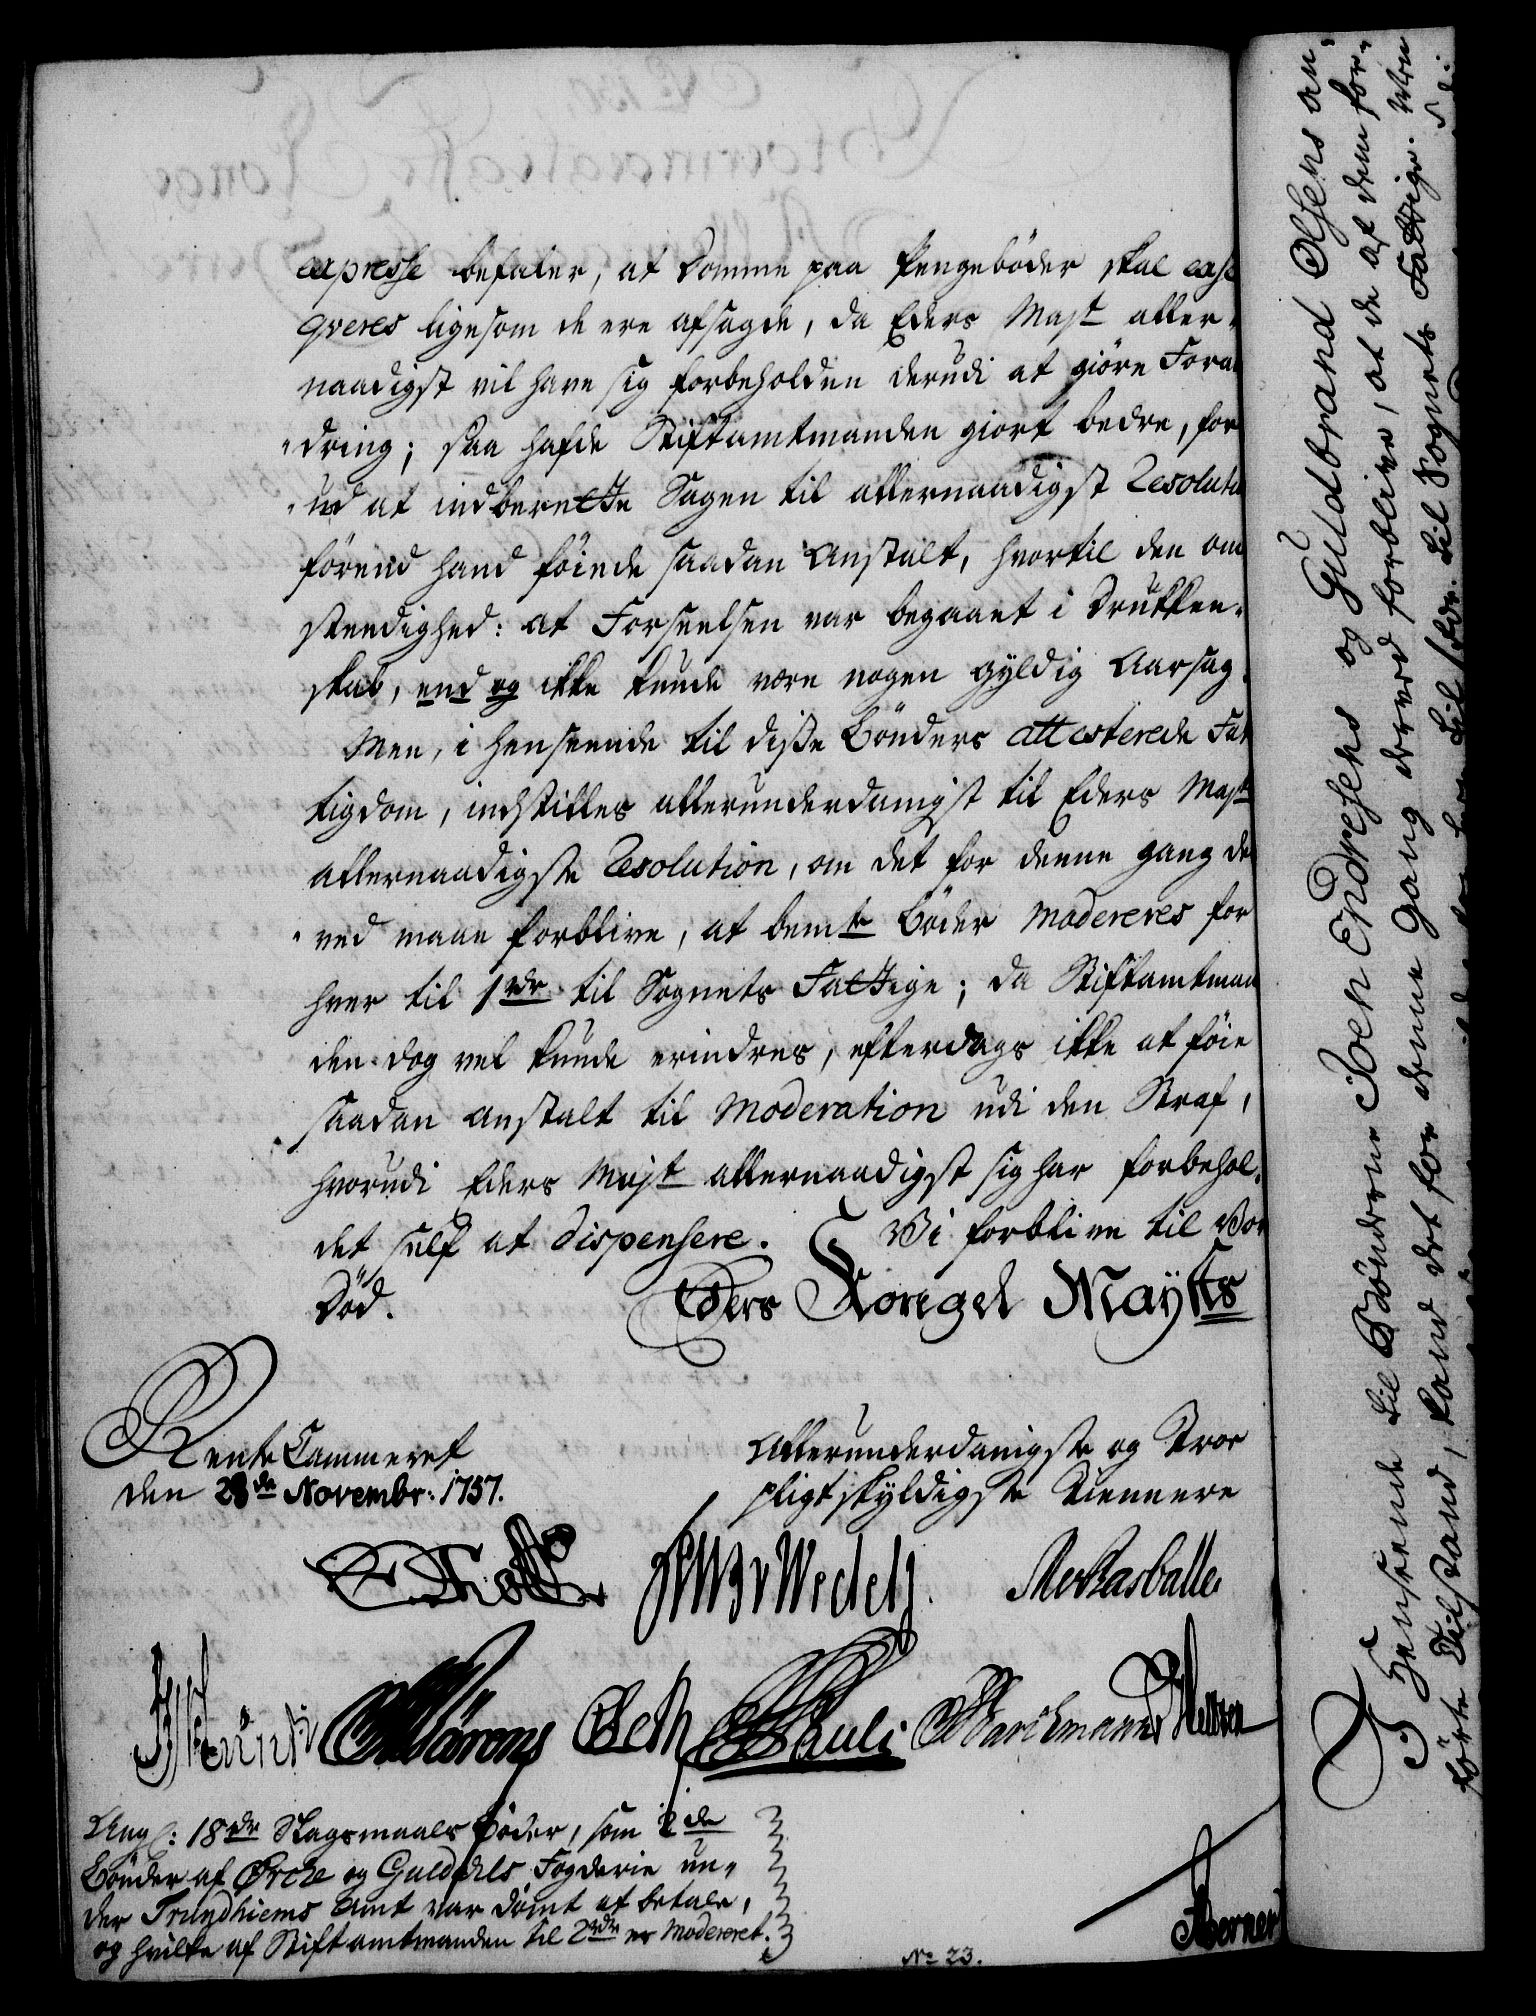 expresse befaler, at Domme paa Pengebøder skal exse
qveres ligesom de ere afsagde, da Eders Mayt aller-
naadigst vil have sig forbeholden derudi at giøre Foran
dring; saa hafde Stiftamtmanden giort bedre, for
ud at indberette Sagen til allernaadigst Resolution
førend hand føiede saadan Anstalt, hvortil den om
stendighed: at Forseelsen var begaaet i Drukken-
skab, end og ikke kunde være nogen gyldig Aarsag.
Men, i henseende til disse Bønders attesterede Fat
tigdom, indstilles allerunderdanigst til Eders Mayts
allernaadigste Resolution, om det for denne gang der
ved maae forblive, at bemte Bøder modereres for
hver til 1 rdr til Sognets Fattige; da Stiftamtman
den dog vel kunde erindres, efterdags ikke at føie
saadan Anstalt til Moderation udi den Straf,
hvorudi Eders Mayt allernaadigst sig har forbehol-
det sælf at dispensere. Vi forblive til Vor
Død.
Eders Kongel Mayts
Rente Cammeret
den 28de Novembr: 1757.
Allerunderdanigste og Troe
pligtskyldigste Tiennere
Holst
Wedels
Sev Rasballe
Oeth
Pauli
Barchmann
Ang: 18 rdr Slagsmaals Bøder, som 2de
Bønder af Orche og Guldals Fogderie un-
der Trundhiems Amt var dømt at betale,
og hvilke af Stiftamtmanden til 2 rdr er modereret.
No 23.
I Henseende til Bønderne Joen Endresens og Guldbrand Olsens an-
førte Tilstand, kand det for denne Gang derved forblive, at de af dem for-
til Sognets Fattige.